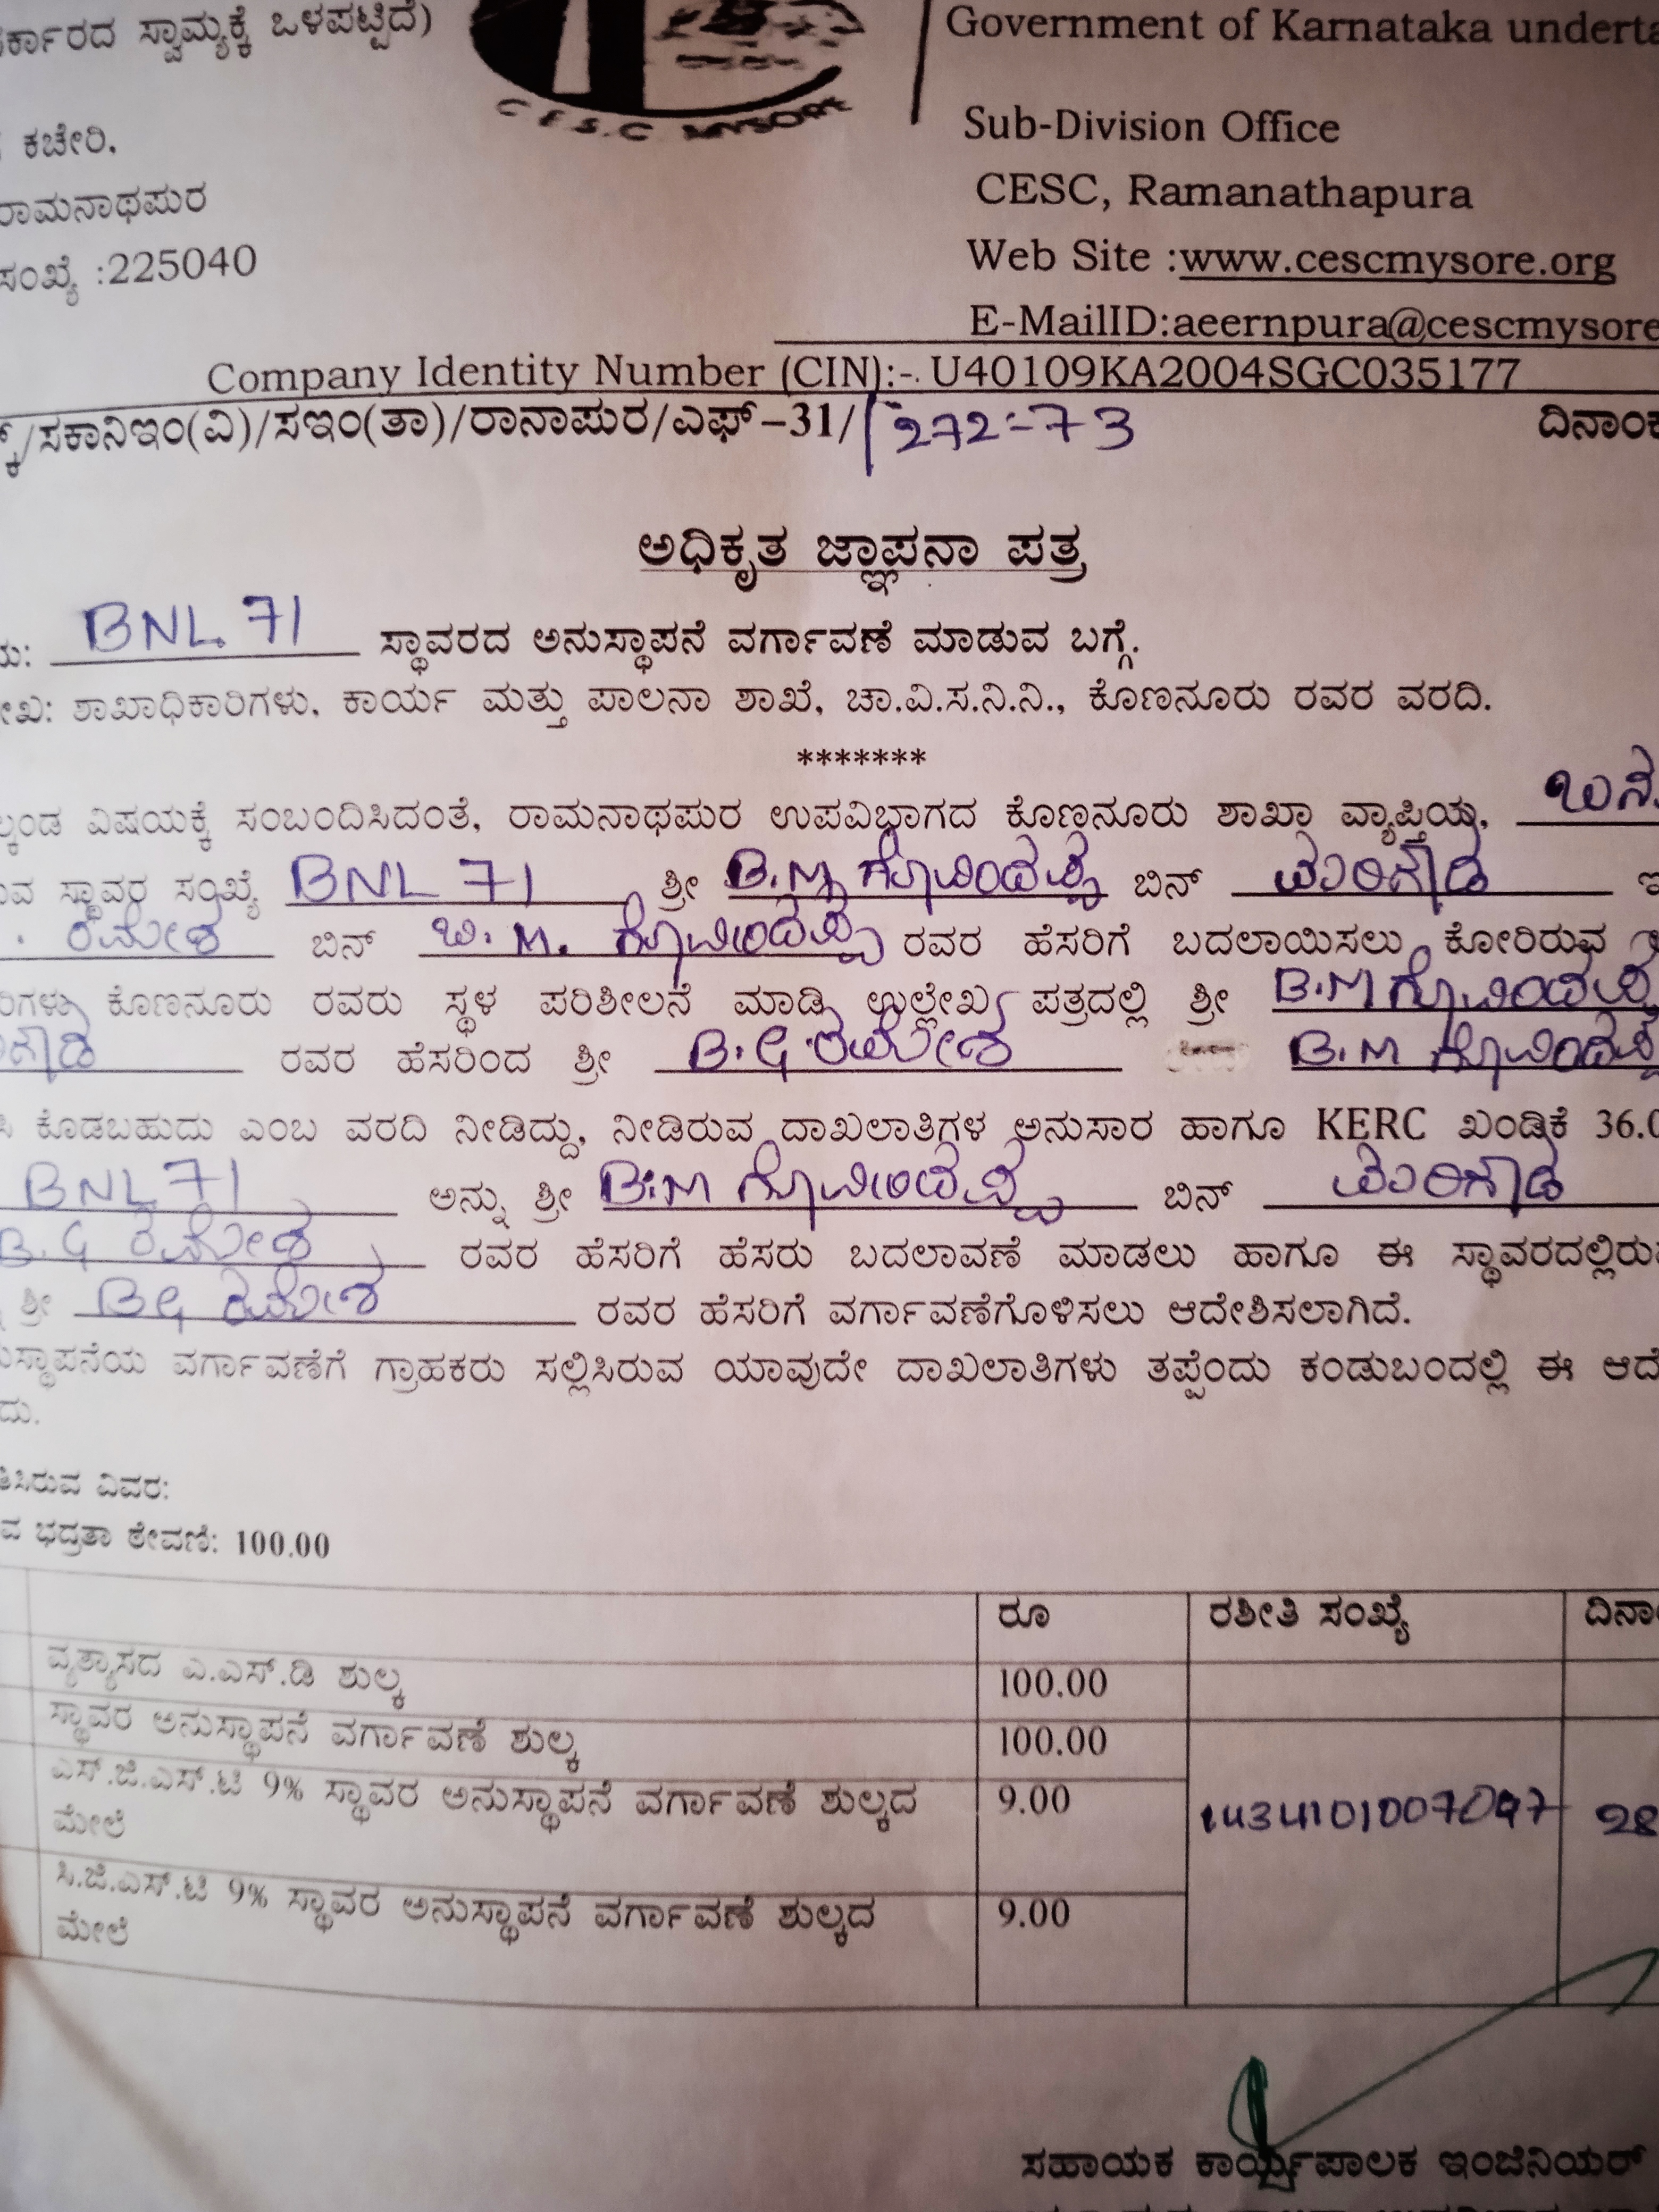 ರ್ಕಾರದ ಸ್ವಾಮ್ಯಕ್ಕೆ ಒಳಪಟ್ಟಿದೆ)
C E S.C MYSORE
Government of Karnataka underta
ಕಚೇರಿ,
Sub-Division Office
ರಾಮನಾಥಪುರ
CESC, Ramanathapura
ಸಂಖ್ಯೆ :225040
Web Site :www.cescmysore.org
E-MailID:aeernpura@cescmysore
Company Identity Number (CIN):-. U40109KA2004SGC035177
ಕ್/ಸಕಾನಿಇಂ(ವಿ)/ಸಇಂ(ತಾ)/ರಾನಾಪುರ/ಎಫ್-31/ 272-73 ದಿನಾಂಕ
ಅಧಿಕೃತ ಜ್ಞಾಪನಾ ಪತ್ರ
ಯ: BNL 71 ಸ್ಥಾವರದ ಅನುಸ್ಥಾಪನೆ ವರ್ಗಾವಣೆ ಮಾಡುವ ಬಗ್ಗೆ.
ೇಖ: ಶಾಖಾಧಿಕಾರಿಗಳು, ಕಾರ್ಯ ಮತ್ತು ಪಾಲನಾ ಶಾಖೆ, ಚಾ.ವಿ.ಸ.ನಿ.ನಿ., ಕೊಣನೂರು ರವರ ವರದಿ.
*******
ಲ್ಕಂಡ ವಿಷಯಕ್ಕೆ ಸಂಬಂದಿಸಿದಂತೆ, ರಾಮನಾಥಪುರ ಉಪವಿಭಾಗದ ಕೊಣನೂರು ಶಾಖಾ ವ್ಯಾಪ್ತಿಯ,
ುವ ಸ್ಥಾವರ ಸಂಖ್ಯೆ BNL 71 ಶ್ರೀ B.M ಗೋವಿಂದಪ್ಪ ಬಿನ್
. ರಮೇಶ ಬಿನ್ ಬಿ. M. ಗೋವಿಂದಪ್ಪ ರವರ ಹೆಸರಿಗೆ ಬದಲಾಯಿಸಲು ಕೋರಿರುವ
ರಿಗಳು ಕೊಣನೂರು ರವರು ಸ್ಥಳ ಪರಿಶೀಲನೆ ಮಾಡಿ ಉಲ್ಲೇಖ ಪತ್ರದಲ್ಲಿ ಶ್ರೀ B.M ಗೋವಿಂದಪ್ಪ
ರವರ ಹೆಸರಿಂದ ಶ್ರೀ B.G ರಮೇಶ B.M ಗೋವಿಂದಪ್ಪ
ಸಿ ಕೊಡಬಹುದು ಎಂಬ ವರದಿ ನೀಡಿದ್ದು, ನೀಡಿರುವ ದಾಖಲಾತಿಗಳ ಅನುಸಾರ ಹಾಗೂ KERC ಖಂಡಿಕೆ 36.0
BNL 71 ಅನ್ನು ಶ್ರೀ B.M ಗೋವಿಂದಪ್ಪ ಬಿನ್
B.G ರಮೇಶ ರವರ ಹೆಸರಿಗೆ ಹೆಸರು ಬದಲಾವಣೆ ಮಾಡಲು ಹಾಗೂ ಈ ಸ್ಥಾವರದಲ್ಲಿರು
ಶ್ರೀ BG ರಮೇಶ ರವರ ಹೆಸರಿಗೆ ವರ್ಗಾವಣೆಗೊಳಿಸಲು ಆದೇಶಿಸಲಾಗಿದೆ.
ುಸ್ಥಾಪನೆಯ ವರ್ಗಾವಣೆಗೆ ಗ್ರಾಹಕರು ಸಲ್ಲಿಸಿರುವ ಯಾವುದೇ ದಾಖಲಾತಿಗಳು ತಪ್ಪೆಂದು ಕಂಡುಬಂದಲ್ಲಿ ಈ ಆದೆ
ದು.
ತಿಸಿರುವ ವಿವರ:
ವ ಭದ್ರತಾ ಠೇವಣಿ: 100.00
ರೂ ರಶೀತಿ ಸಂಖ್ಯೆ ದಿನಾ
ವ್ಯತ್ಯಾಸದ ಎ.ಎಸ್.ಡಿ ಶುಲ್ಕ 100.00
ಸ್ಥಾವರ ಅನುಸ್ಥಾಪನೆ ವರ್ಗಾವಣೆ ಶುಲ್ಕ 100.00
ಎಸ್.ಜಿ.ಎಸ್.ಟಿ 9% ಸ್ಥಾವರ ಅನುಸ್ಥಾಪನೆ ವರ್ಗಾವಣೆ ಶುಲ್ಕದ 9.00 28
ಮೇಲೆ
ಸಿ.ಜಿ.ಎಸ್.ಟಿ 9% ಸ್ಥಾವರ ಅನುಸ್ಥಾಪನೆ ವರ್ಗಾವಣೆ ಶುಲ್ಕದ 9.00
ಮೇಲೆ
ಸಹಾಯಕ ಕಾರ್ಯಪಾಲಕ ಇಂಜಿನಿಯರ್